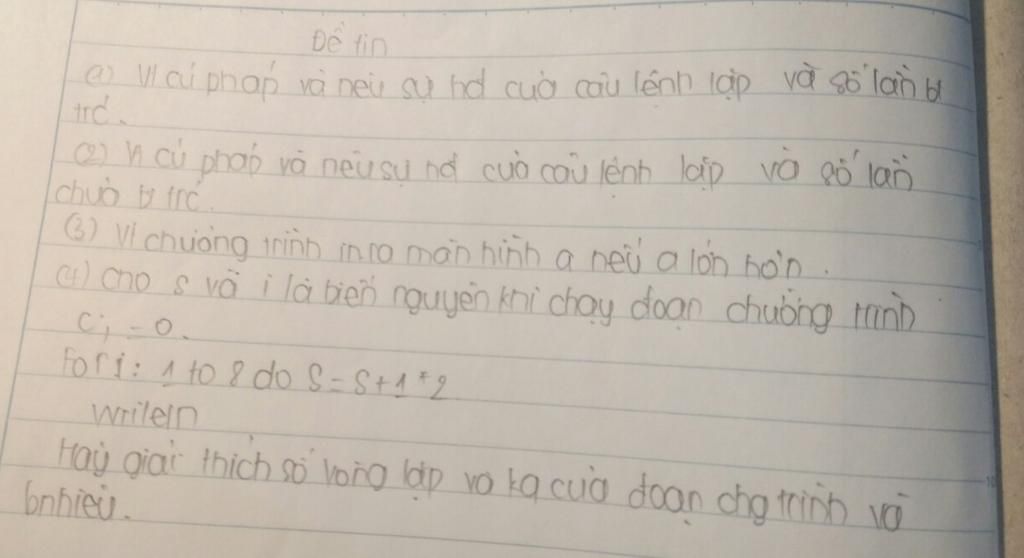 Đề tin
a) Vi cú pháp và nêu sự hđ của câu lệnh lặp và số lần bt
trc.
(2) Vi cú pháp và nêu sự hđ của câu lệnh lặp và số lần
chưa bt trc.
(3) Vi chương trình in ra màn hình a nếu a lớn hơn.
(4) cho s và i là biến nguyên khi chạy đoạn chương trình
C; = 0.
For i: 1 to 8 do S = S + 1 * 2
Writeln
Hãy giải thích số vòng lặp và kq của đoạn chg trình và
bnhiêu.